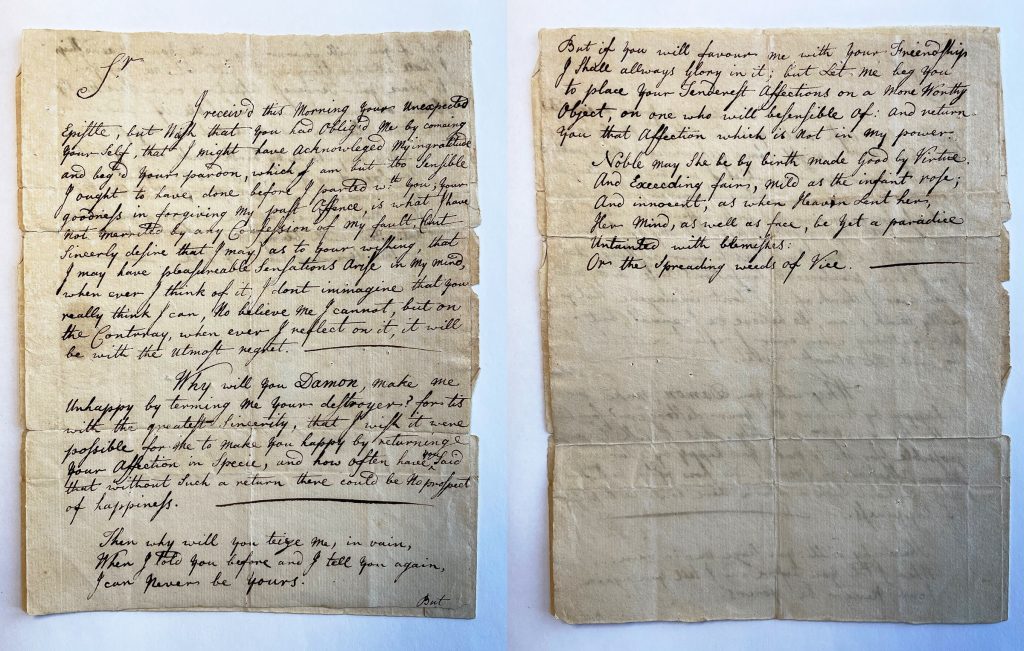 Sr
I receiv'd this Morning Yours Unexpected
Epistle, but Wish that You had Oblig'd Me by comeing
Your Self, that I might have Acknowleged My ingratitude
and beg'd Your pardon, which I am but too Sensible
I ought to have done before I parted wth You, Your
goodness in forgiving My past Offence, is what I have
Not Merrited by any Confession of My fault, (but
Sincerly desire that I may) as to Your wishing, that
I may have pleasureable Sensations Arise in My mind,
when ever I think of it, I dont immagine that You
really think I can, No believe Me I cannot, but on
the Contrray, when ever I reflect on it, it will
be with the Utmost regret.
Why will You Damon, make me
Unhappy by terming Me Your destroyer? for tis
with the greatest Sincerity, that I wish it were
possible for me to make You happy by returning
Your Affection in Specie, and how often have you Said
that without Such a return there could be No prospect
of happiness.
Then why will you teize Me, in vain,
When I told You before and I tell You again,
I can Never be Yours.
But
But if You will favour me with Your Freindship
I Shall allways Glory in it; but Let Me beg You
to place Your Tenderest Affections on a More Worthy
Object, on one who will be sensible Of: And return
You that Affection which is Not in my power.
Noble may She be by birth made Good by Virtue.
And Exeecding fair, mild as the infant rose;
And innocent, as when Heaven Lent her,
Her Mind, as well as face, be Yet a paradice
Untainted with blemishes:
Or the Spreading weeds of Vice.